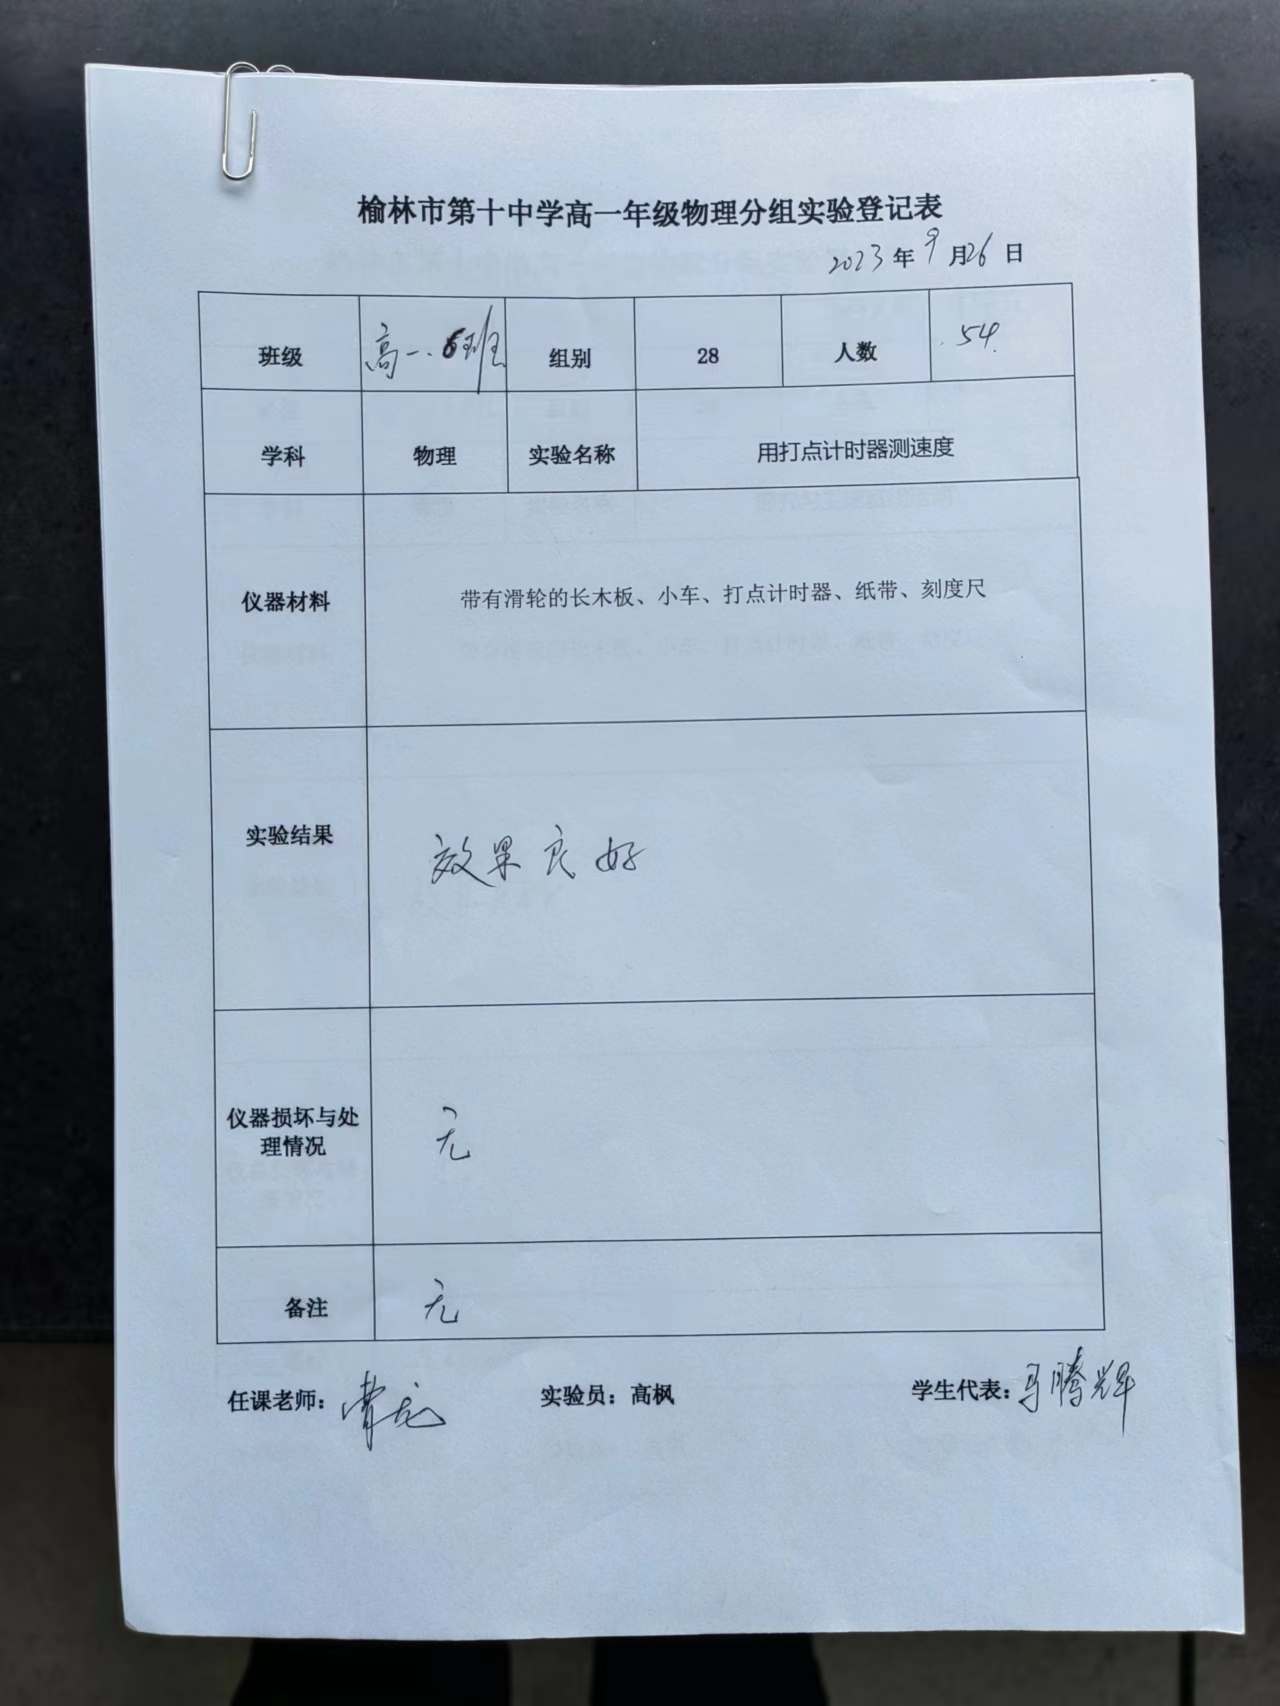 榆林市第十中学高一年级物理分组实验登记表
2023年9月26日
班级 高一.6班 组别 28 人数 54.
学科 物理 实验名称 用打点计时器测速度
仪器材料 带有滑轮的长木板、小车、打点计时器、纸带、刻度尺
实验结果 效果良好
仪器损坏与处
理情况 无
备注 无
任课老师： 实验员：高枫 学生代表：马腾辉